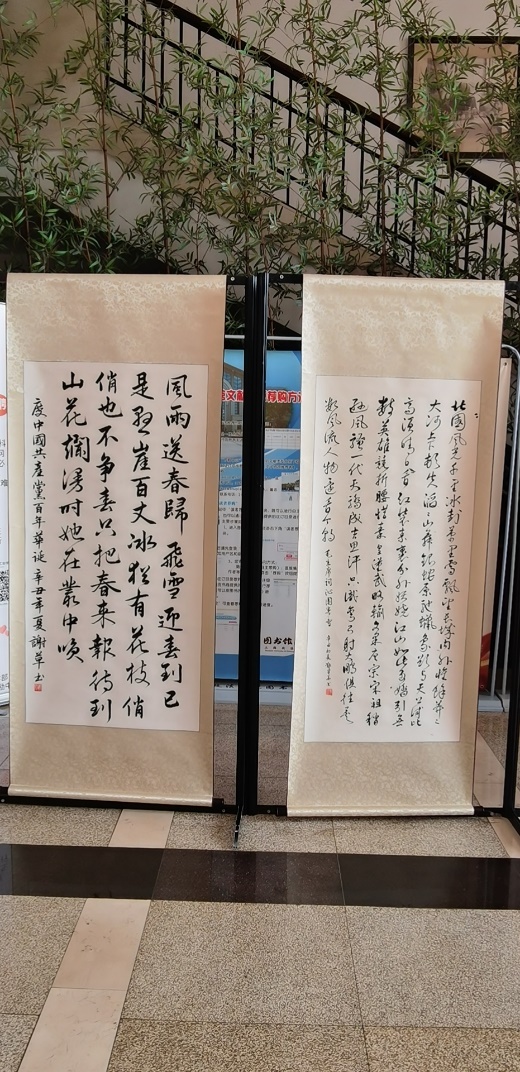 風雨送春歸飛雪迎春到已
是懸崖百丈冰犹有花枝俏
俏也不争春只把春来報待到
山花爛漫时她在叢中咲
慶中國共產黨百年華誕辛丑年夏謝草书
北國風光千里冰封萬里雪飄望長城内外惟餘莽〻
大河上下頓失滔〻山舞銀蛇原馳蠟象欲与天公試比
高須晴日看红装素裹分外妖娆江山如此多嬌引無
數英雄競折腰惜秦皇漢武略輸文采唐宗宋祖稍
遜風骚一代天骄成吉思汗只識弯弓射大鵰俱往矣
數風流人物還看今朝毛主席词沁園春雪
文献
荐购方